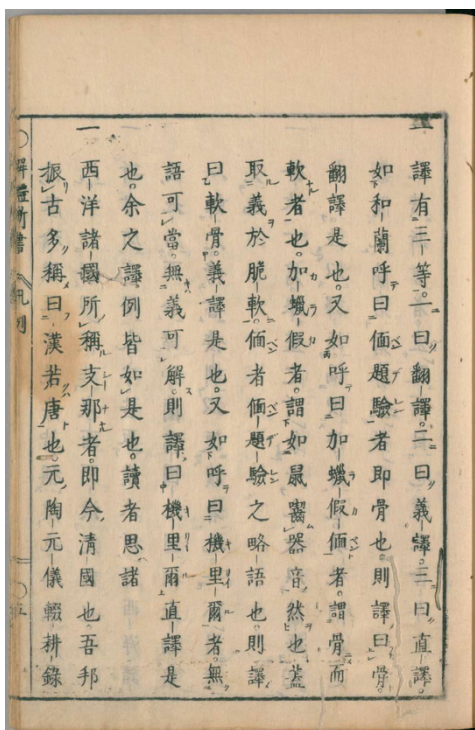 一 譯有三等。一曰翻譯。二曰義譯。三曰直譯。
如和蘭呼曰偭題驗者即骨也則譯曰骨。
翻譯是也。又如呼曰加蠟假偭者。謂骨而
軟者也。加蠟假者。謂如鼠嚙器音然也。蓋
取義於脆軟。偭者偭題驗之略語也。則譯
曰軟骨。義譯是也。又如呼曰機里爾者。無
語可當。無義可解。則譯曰機里爾。直譯是
也。余之譯例皆如是也。讀者思諸
一 西洋諸國所稱支那者。即今清國也。吾邦
振古多稱曰漢若唐也。元陶元儀輟耕錄
解體新書 凡例 五